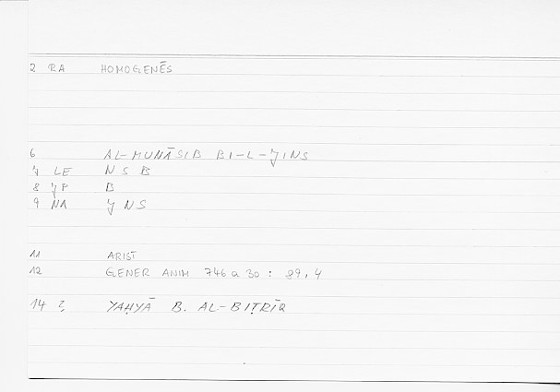 2 RA HOMOGENĒS
6 AL-MUNĀSIB BI-L-ǦINS
7 LE NSB
8 ǦP B
9 NA ǦNS
11 ARIST
12 GENER ANIM 746a30: 89,4
14 ? YAḤYĀ B. AL-BIṬRĪQ